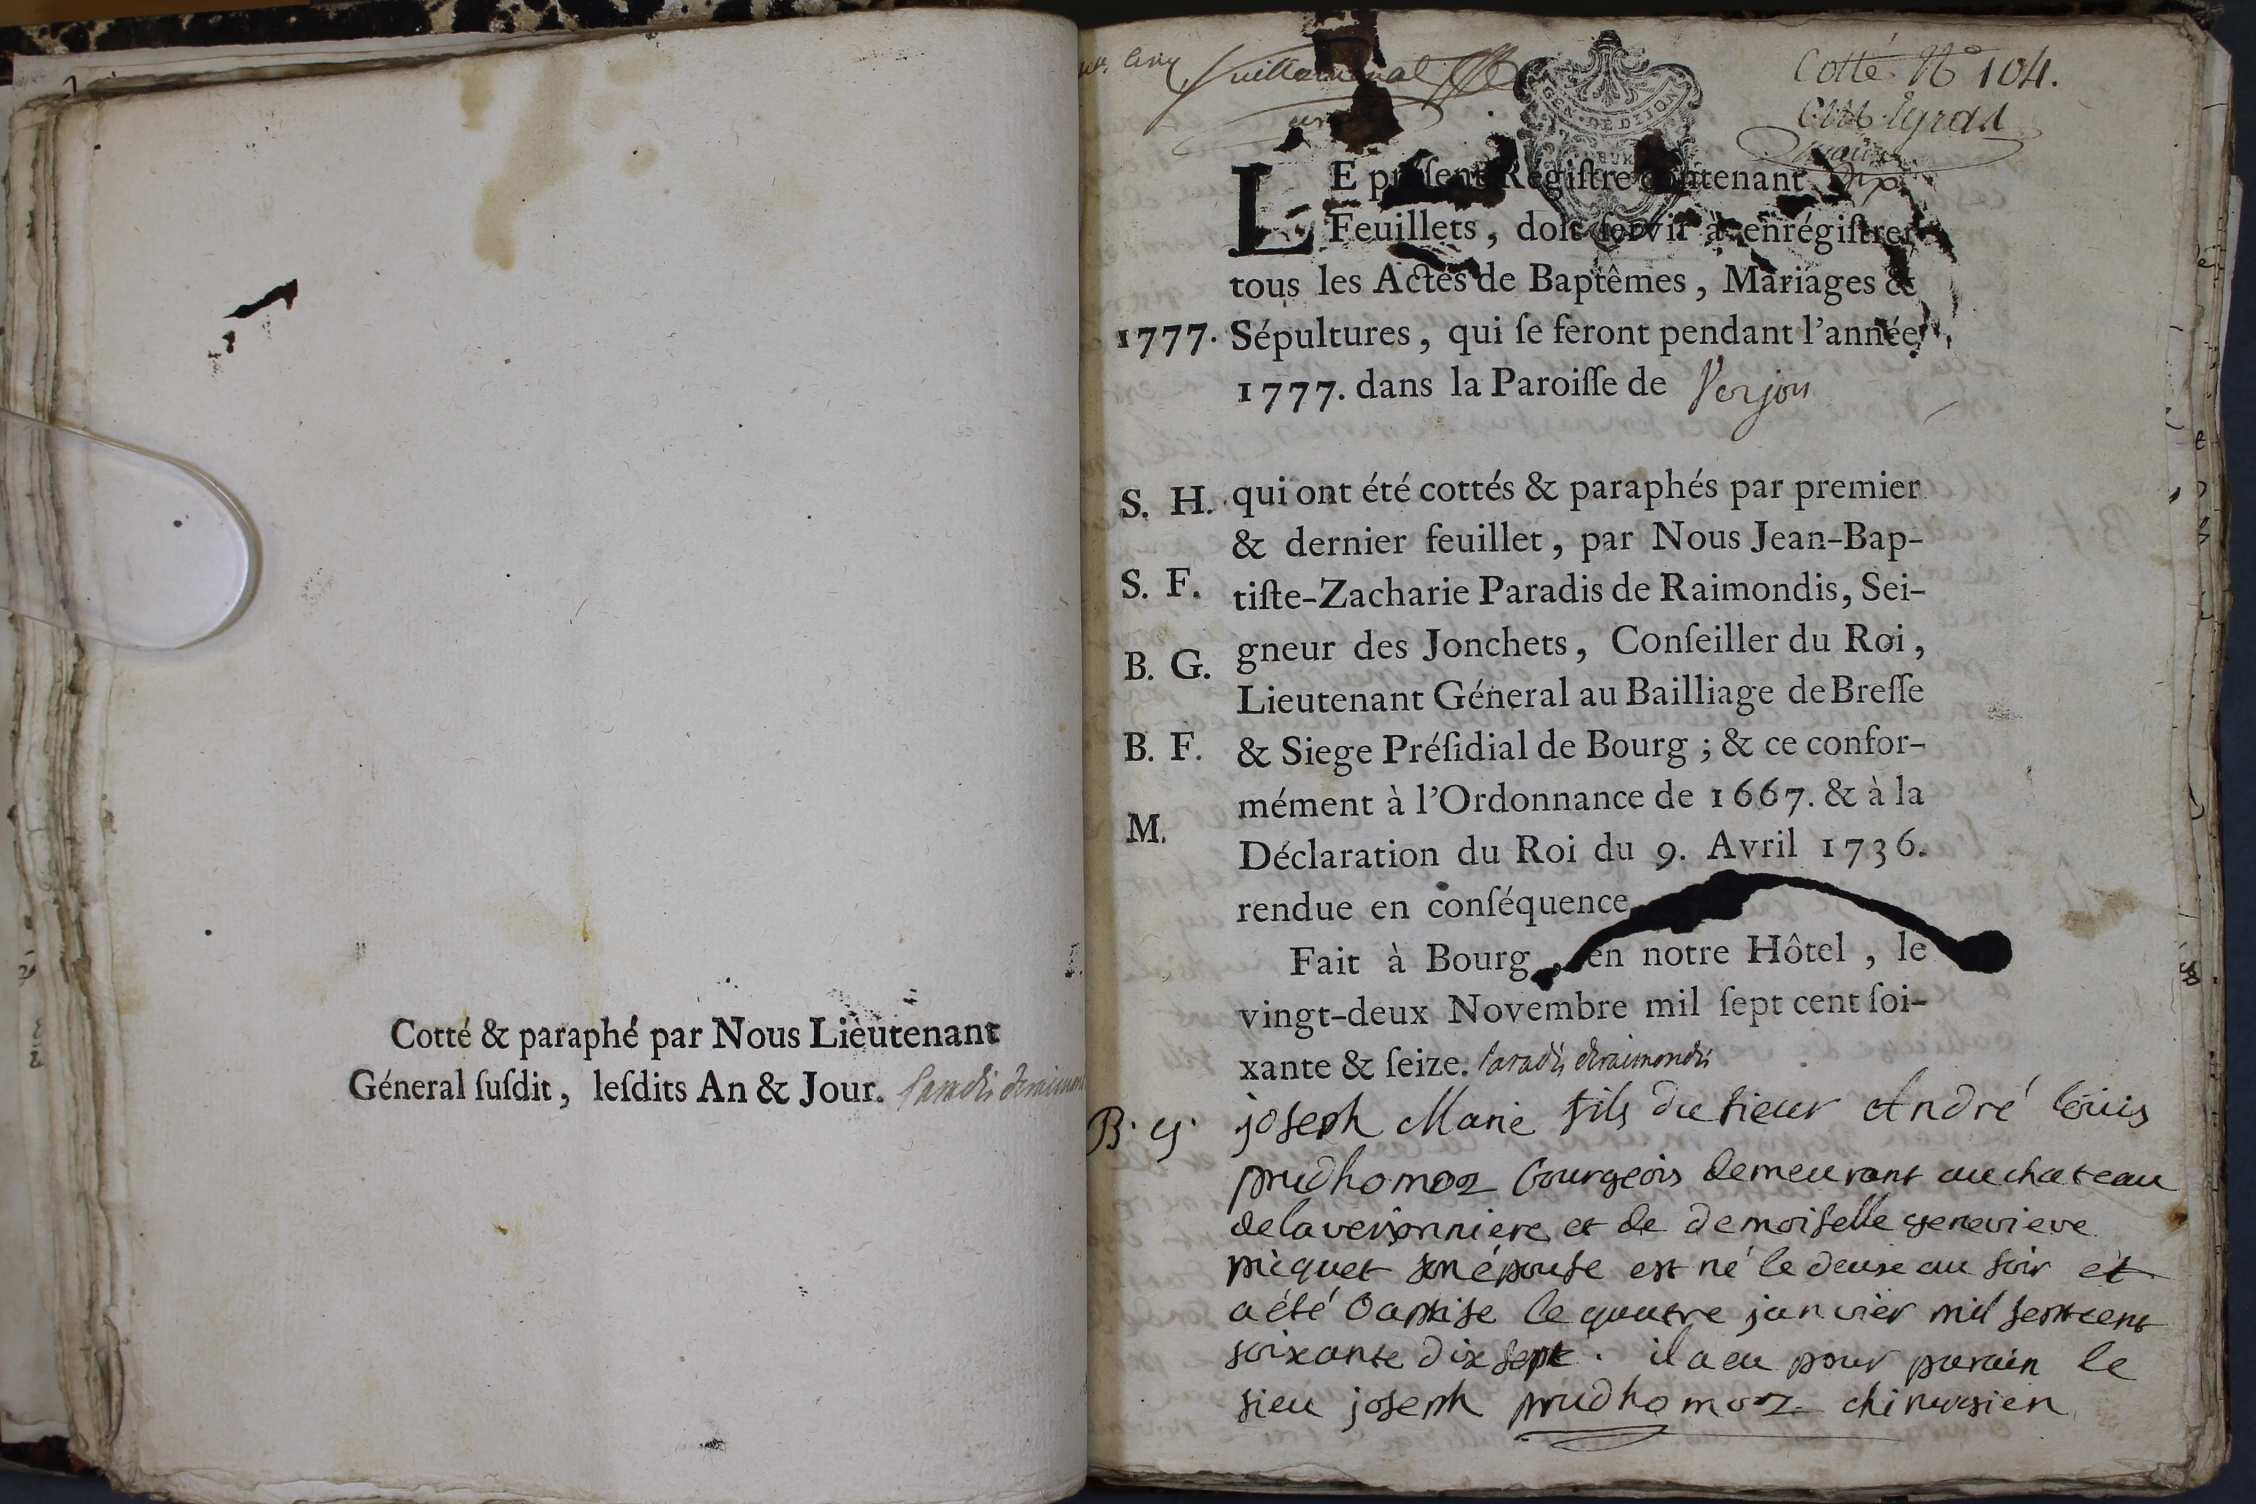 Cotté & paraphé par Nous Lieutenant
Géneral ſuſdit, leſdits An & Jour. Paradis deraimon
Cotté N° 104.
GEN. DE DIJON
LE préſent Régiſtre contenant dix
Feuillets, doit ſervir à enrégiſtrer
tous les Actes de Baptêmes, Mariages &
1777. Sépultures, qui ſe feront pendant l'année
1777. dans la Paroiſſe de Verjon
S. H. qui ont été cottés & paraphés par premier
& dernier feuillet, par Nous Jean-Bap-
S. F. tiſte-Zacharie Paradis de Raimondis, Sei-
B. G. gneur des Jonchets, Conſeiller du Roi,
Lieutenant Géneral au Bailliage de Breſſe
B. F. & Siege Préſidial de Bourg ; & ce confor-
mément à l'Ordonnance de 1667. & à la
M. Déclaration du Roi du 9. Avril 1736.
rendue en conſéquence
Fait à Bourg, en notre Hôtel, le
vingt-deux Novembre mil ſept cent ſoi-
xante & ſeize. Paradis deraimondis
B. G. joseph Marie fils du sieur André Louis
prudhomoz bourgeois demeurant au chateau
de laverjonniere et de demoiselle genevieve
picquet son épouse est né le deux au soir et
a été baptise le quatre janvier mil septcent
soixante dix sept. il a eu pour parain le
sieu joseph prudhomoz chirurgien